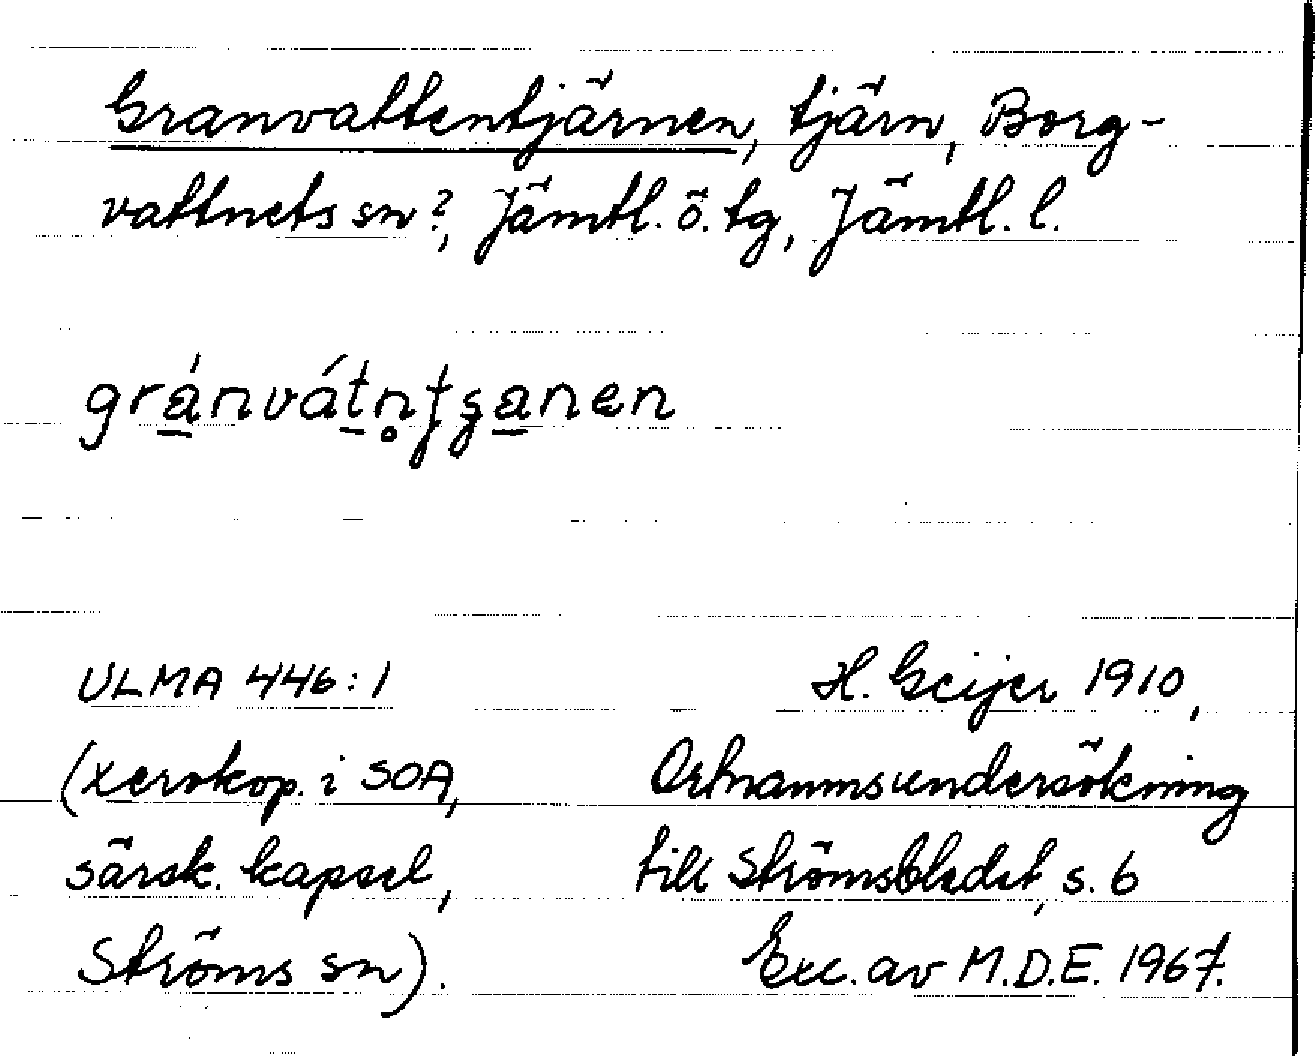 Granvattentjärnen, tjärn, Borg-
vattnets sn?, Jämtl. ö. tg, Jämtl. l.
grá̱nvát̠n̥ʈʂa̱nen
ULMA 446:1
(xerokop. i SOA,
särsk. kapsel,
Ströms sn).
H. Geijer 1910,
Ortnamnsundersökning
till Strömsbladet, s. 6
Exc. av M.D.E. 1967.